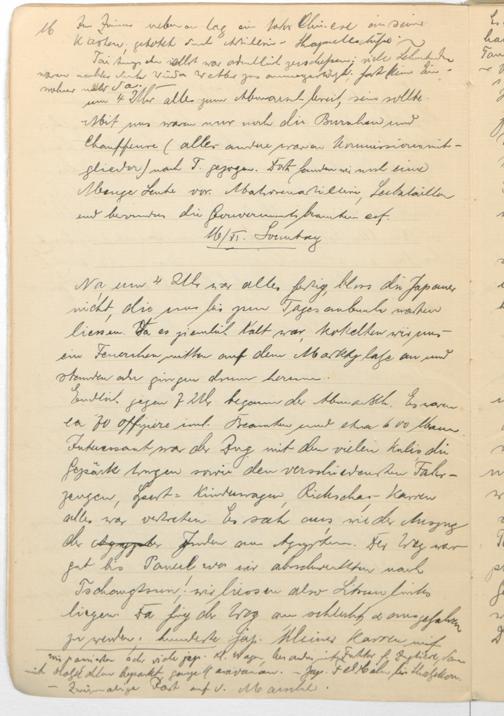 16 Im Zimmer nebenan lag ein toter Chinese in seine
Kästen, getötet durch Artillerie-
Taitungschen selbst war ordentlich zerschossen; viele
waren Häuser fast keine Ein-
wohner mehr da.
um 4 Uhr alles zum Abmarsch bereit sein sollte
Mit uns waren nur noch die Burschen und
Chauffeure (alles andere waren Kommissionsmit-
glieder) nach T. gezogen. Dort fanden wir noch eine
Menge Leute vor. Matrosenartillerie, Seebataillon
und besonders die Gouvernementsbeamten etc.
16/XI. Sonntag
Na um 4 Uhr war alles fertig, bloss die Japaner
nicht, die uns bis zum Tagesanbruch warten
liessen. Da es ziemlich kalt war, steckten wir uns
ein Feuerchen mitten auf dem Marktplatze an und
standen oder gingen drum herum.
Endlich gegen 7 Uhr begann der Abmarsch. Es waren
ca 70 Offiziere incl. Beamten und etwa 600 Mann
Interessant war der Zug mit den vielen Kulis die
Gepäck trugen sowie den verschiedensten Fahr-
zeugen, Kinderwagen, Rickscha, Karren
alles war vertreten. Es sah aus, wie der Auszug
der Juden aus Aegypten. Der Weg war
gut bis wo wir abschwenkten nach
Tschangtsun; wir liessen also Litsun links
liegen. Da fing der Weg an schlecht & ausgefahren
zu werden. Hunderte jap. kleiner Karren mit
viele jap. kl. Wagen
ganze Karawanen. - Jap. Feldbahn bis
- zweimalige Rast auf d. Marsche.